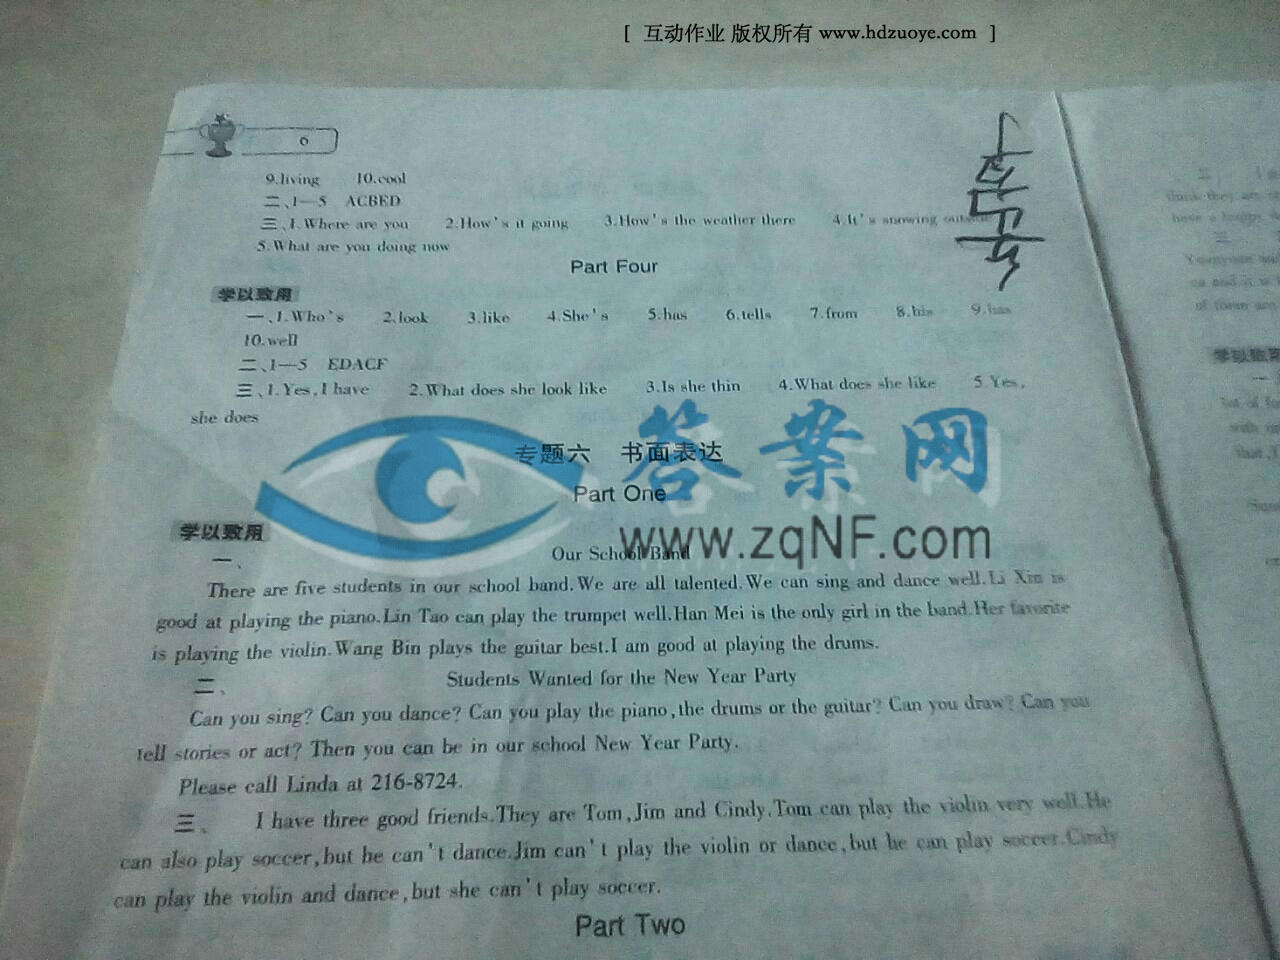 [ 互动作业 版权所有 www.hdzuoye.com ]
9.living 10.cool
二、1—5 ACBED
三、1.Where are you 2.How's it going 3.How's the weather there 4.It's snowing outside
5.What are you doing now
Part Four
学以致用
一、1.Who's 2.look 3.like 4.She's 5.has 6.tells 7.from 8.his 9.has
10.well
二、1—5 EDACF
三、1.Yes,I have 2.What does she look like 3.Is she thin 4.What does she like 5.Yes,
she does
专题六 书面表达
答案网
Part One
www.zqNF.com
学以致用
一、 Our School Band
There are five students in our school band.We are all talented.We can sing and dance well.Li Xin is
good at playing the piano.Lin Tao can play the trumpet well.Han Mei is the only girl in the band.Her favorite
is playing the violin.Wang Bin plays the guitar best.I am good at playing the drums.
二、 Students Wanted for the New Year Party
Can you sing? Can you dance? Can you play the piano,the drums or the guitar? Can you draw? Can you
tell stories or act? Then you can be in our school New Year Party.
Please call Linda at 216-8724.
三、 I have three good friends.They are Tom,Jim and Cindy.Tom can play the violin very well.He
can also play soccer,but he can't dance.Jim can't play the violin or dance,but he can play soccer.Cindy
can play the violin and dance,but she can't play soccer.
Part Two